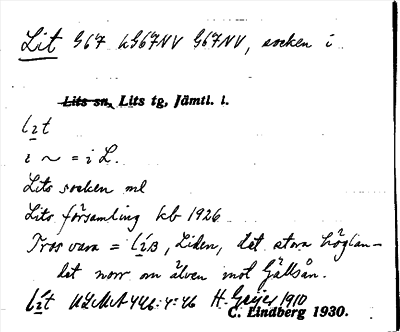 Lit G67 kG67NV G67NV, socken i
Lits sn, Lits tg, Jämtl. l.
i ~ = i L.
Lits socken ml
Lits församling kb 1926
Tros vara = Liden, det stora höglan-
det norr om älven mot Gällsån.
H. Geijer 1910
C. Lindberg 1930.